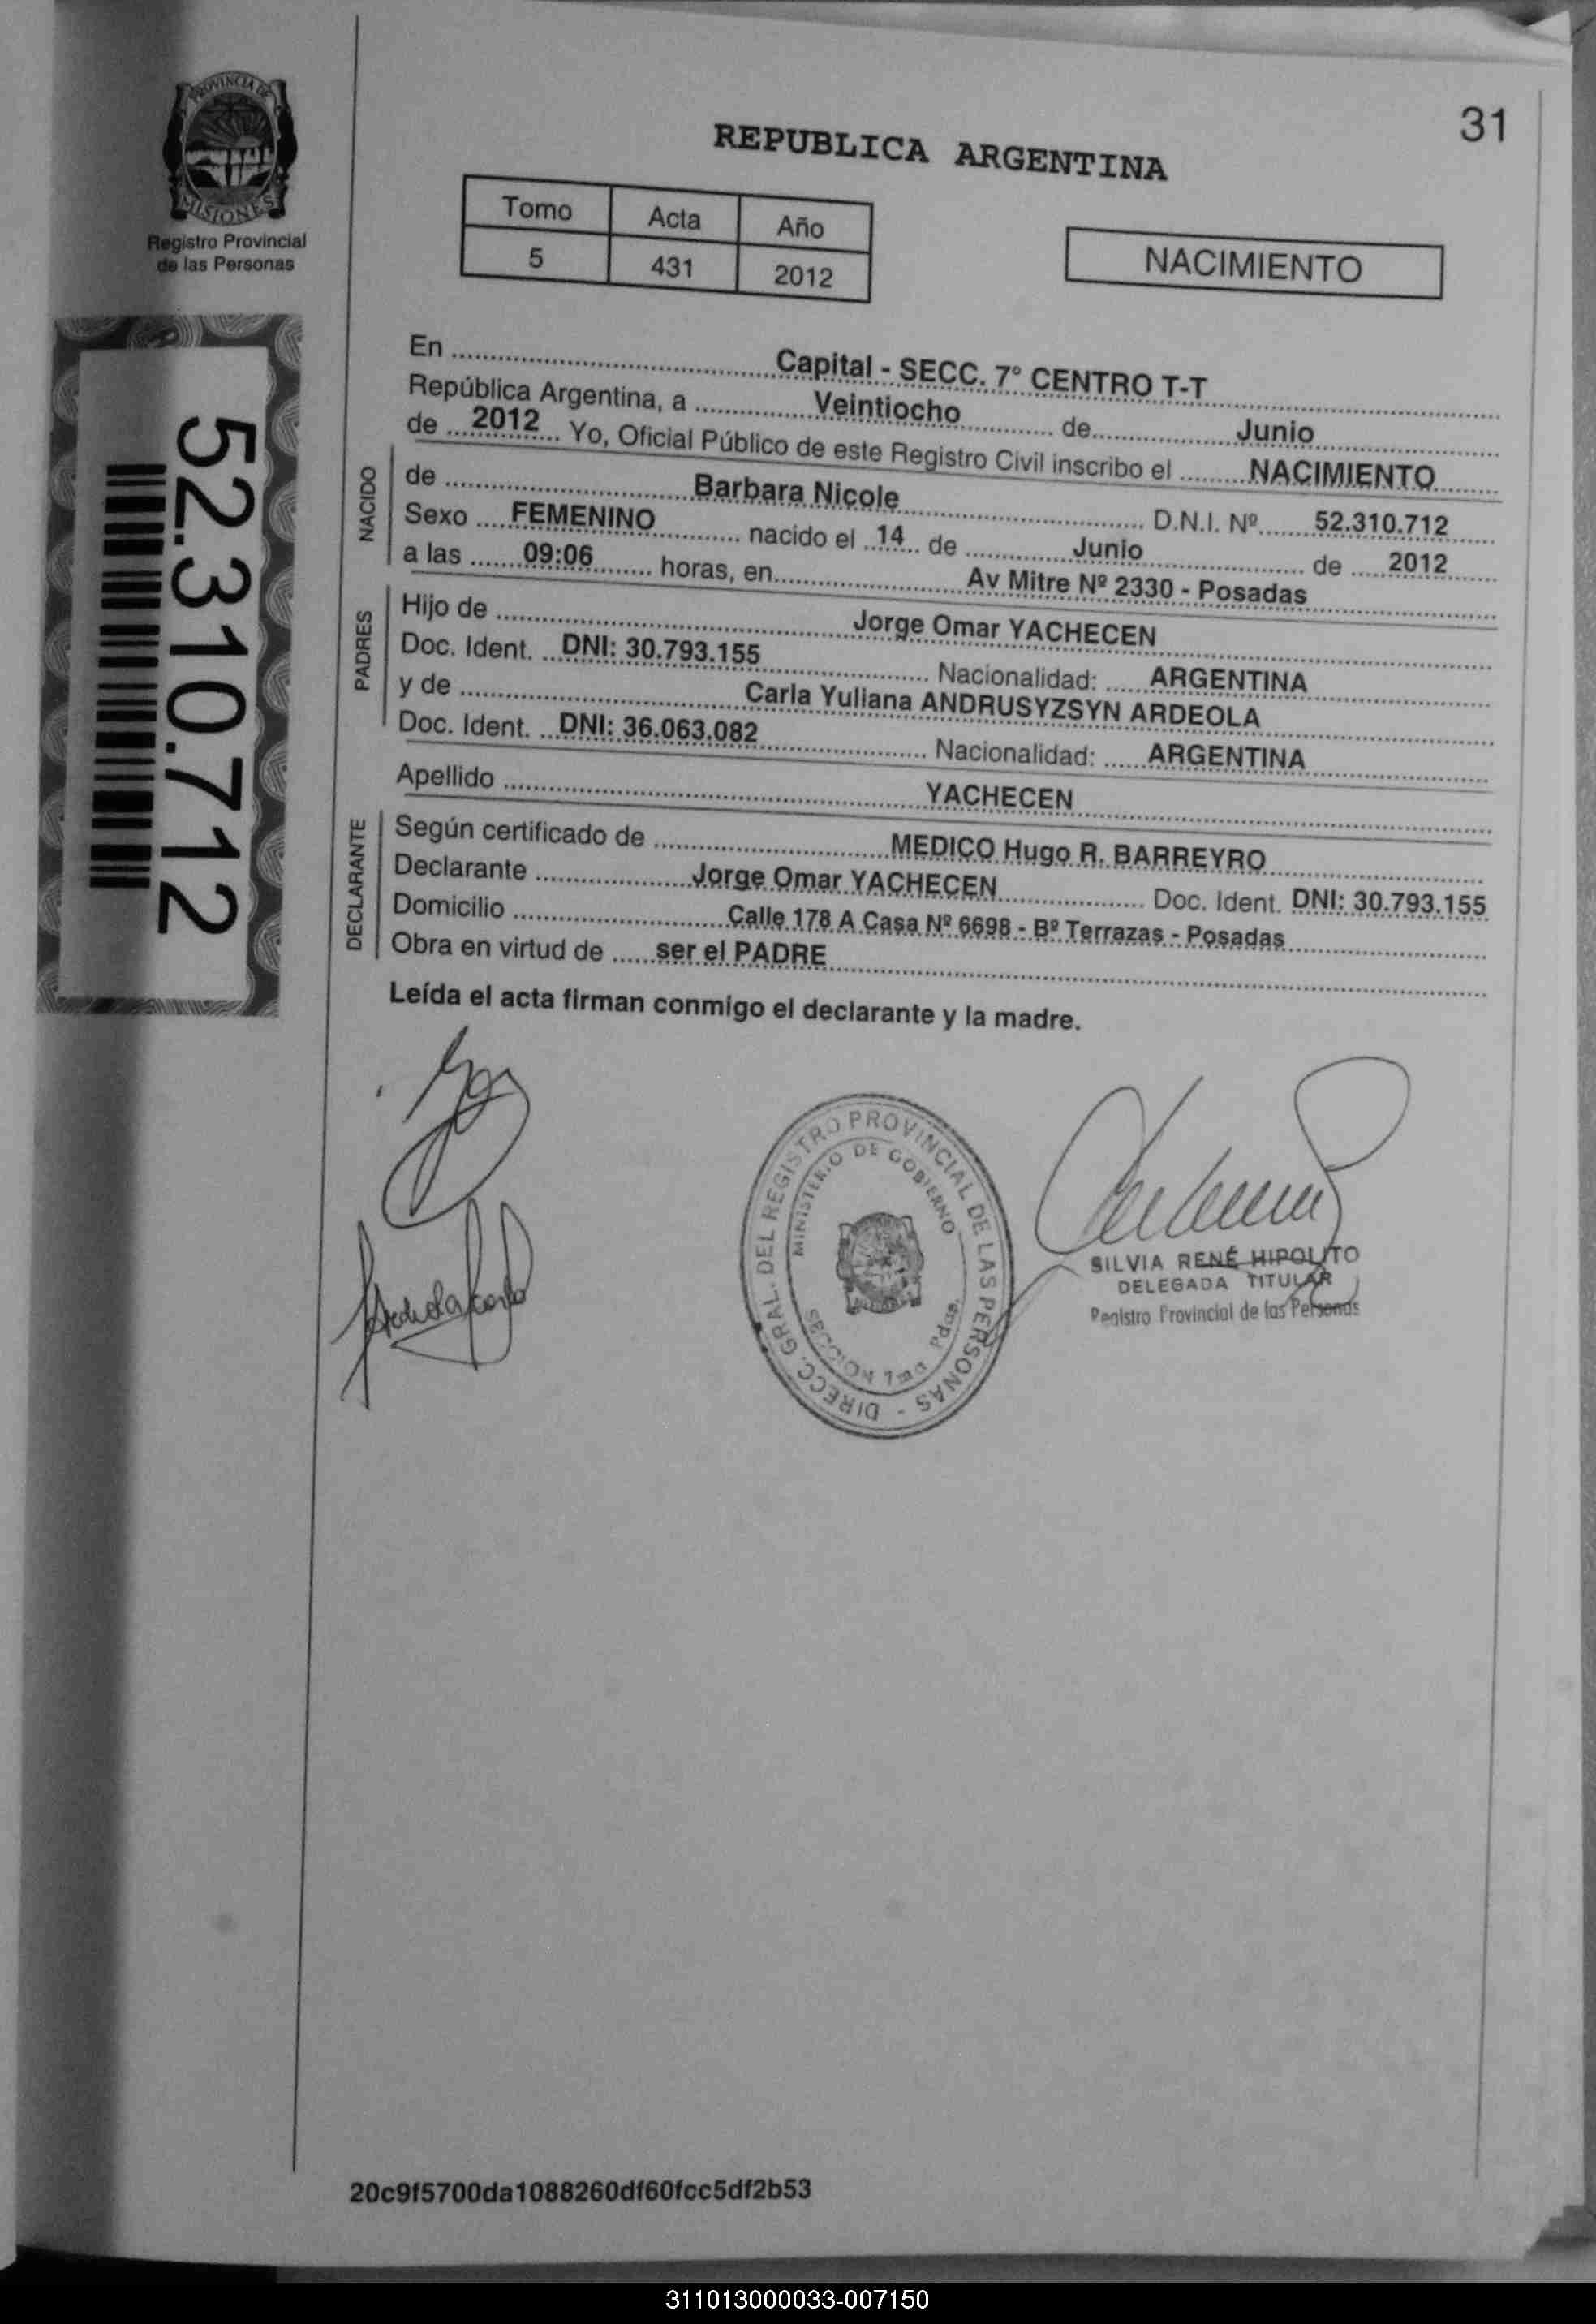 PROVINCIA DE
MISIONES
Registro Provincial
de las Personas
52.310.712
31
REPUBLICA ARGENTINA
Tomo Acta Año
5 431 2012
NACIMIENTO
En Capital - SECC. 7° CENTRO T-T
República Argentina, a Veintiocho de Junio
de 2012 Yo, Oficial Público de este Registro Civil inscribo el NACIMIENTO
NACIDO
de Barbara Nicole D.N.I. Nº 52.310.712
Sexo FEMENINO nacido el 14 de Junio de 2012
a las 09:06 horas, en Av Mitre Nº 2330 - Posadas
PADRES
Hijo de Jorge Omar YACHECEN
Doc. Ident. DNI: 30.793.155 Nacionalidad: ARGENTINA
y de Carla Yuliana ANDRUSYZSYN ARDEOLA
Doc. Ident. DNI: 36.063.082 Nacionalidad: ARGENTINA
Apellido YACHECEN
DECLARANTE
Según certificado de MEDICO Hugo R. BARREYRO
Declarante Jorge Omar YACHECEN Doc. Ident. DNI: 30.793.155
Domicilio Calle 178 A Casa Nº 6698 - Bº Terrazas - Posadas
Obra en virtud de ser el PADRE
Leída el acta firman conmigo el declarante y la madre.
Ardeola Carla
DIRECC. GRAL. DEL REGISTRO PROVINCIAL DE LAS PERSONAS -
MINISTERIO DE GOBIERNO
SECCION 7ma Pdas.
SILVIA RENÉ HIPOLITO
DELEGADA TITULAR
Registro Provincial de las Personas
20c9f5700da1088260df60fcc5df2b53
311013000033-007150